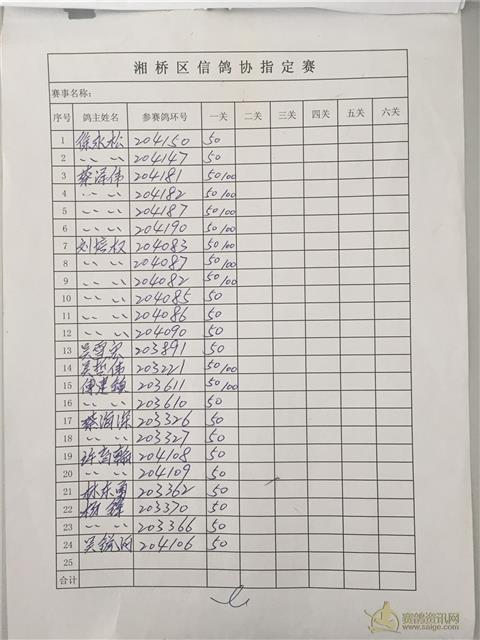 湘桥区信鸽协指定赛
赛事名称：
序号 鸽主姓名 参赛鸽环号 一关 二关 三关 四关 五关 六关
1 徐永松 204150 50
2 〃 〃 204147 50
3 蔡泽伟 204181 50/100
4 〃 〃 204182 50/100
5 〃 〃 204187 50/100
6 〃 〃 204190 50/100
7 刘培权 204083 50/100
8 〃 〃 204087 50/100
9 〃 〃 204082 50/100
10 〃 〃 204085 50
11 〃 〃 204086 50
12 〃 〃 204090 50
13 吴雪宏 203891 50
14 吴哲伟 203221 50/100
15 陈建 203611 50/100
16 〃 〃 203610 50
17 蔡海深 203326 50
18 〃 〃 203327 50
19 许高翰 204108 50
20 〃 〃 204109 50
21 林东勇 203362 50
22 杨锋 203370 50
23 〃 〃 203366 50
24 吴 204106 50
25
合计
赛鸽资讯网
www.saige.com